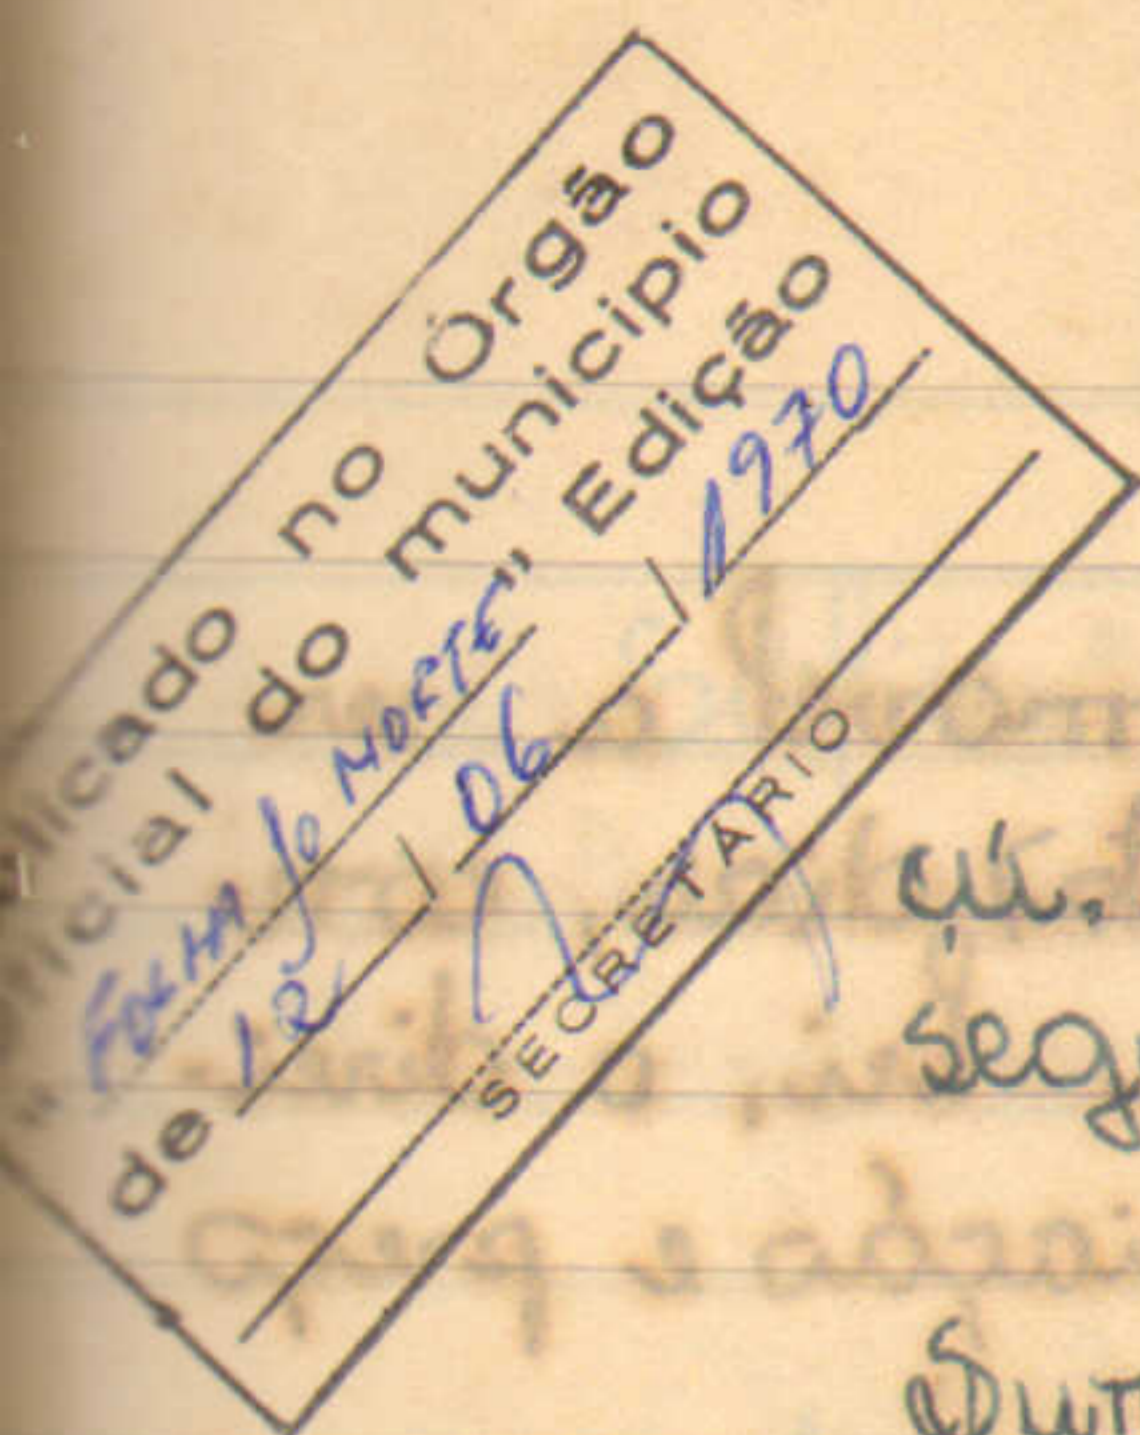 licado no Órgão
icial do município
"FOLHA do NORTE" Edição
de 12/06/1970
SECRETÁRIO
ci.
seg